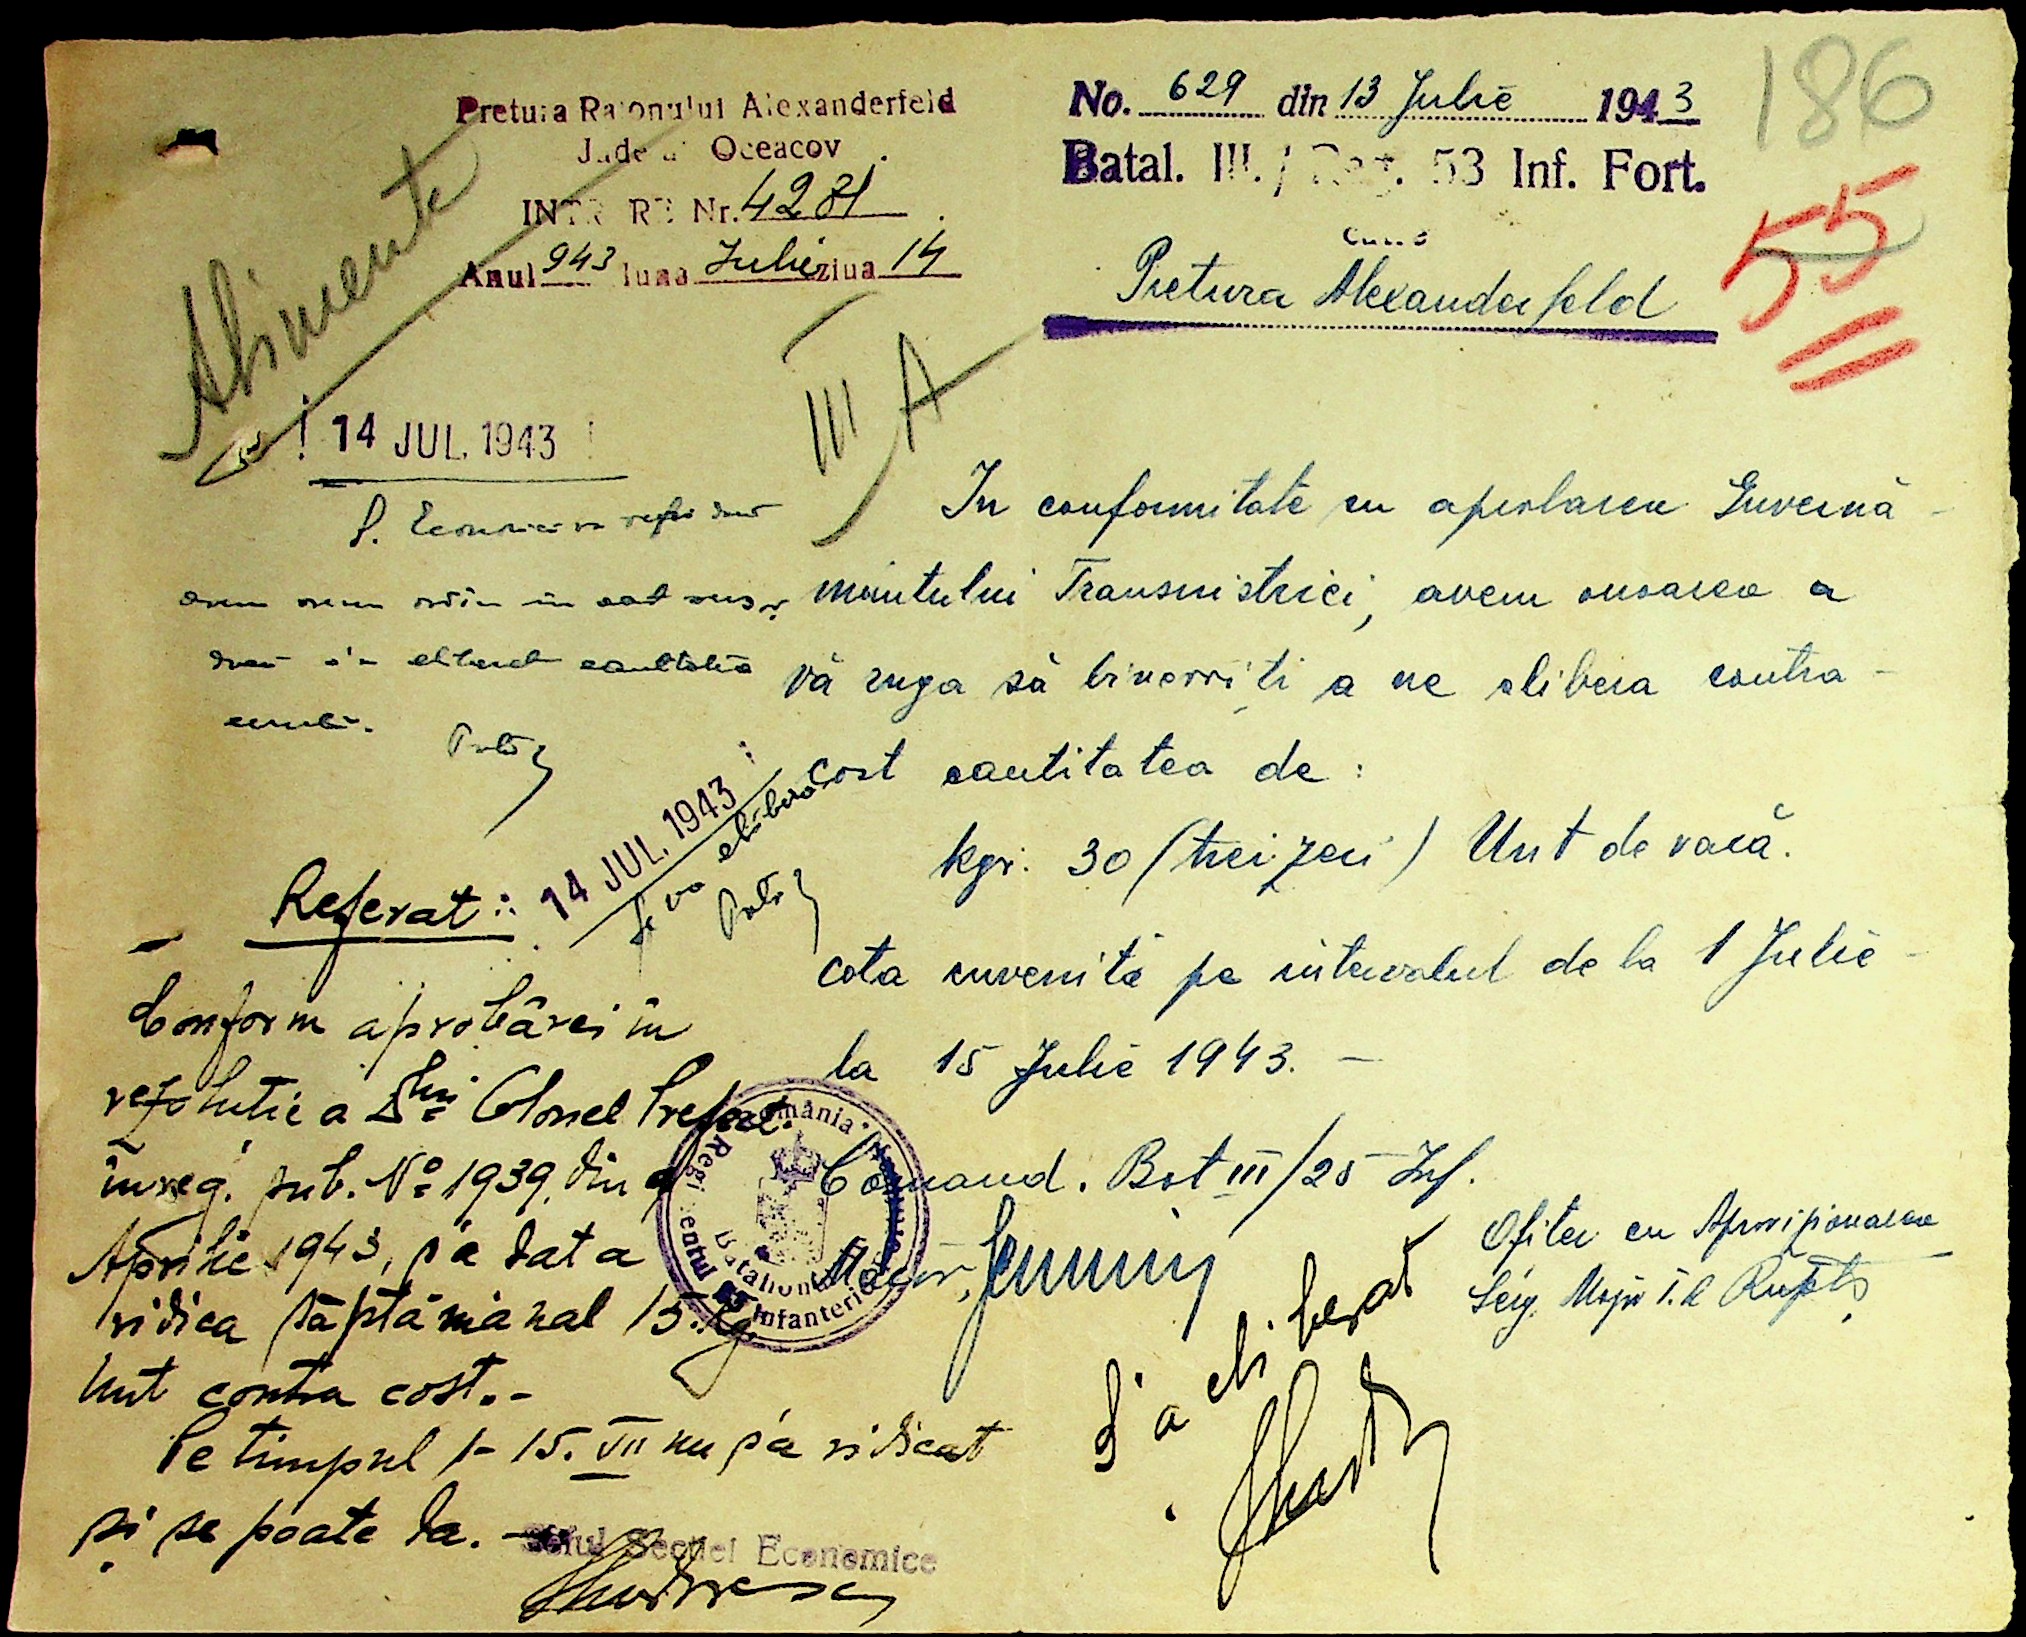 Pretura Raionului Alexanderfeld
Județul Oceacov
INTRARE Nr. 4231
Anul 943 luna Iulie ziua 14
Alimente
14 JUL. 1943
No. 629 din 13 Julie 1943
Batal. III. / Reg. 53 Inf. Fort.
186
55
către
Pretura Alexanderfeld
III A
In conformitate cu aprobarea Guvernă-
mântului Transnistriei, avem onoarea a
vă ruga să binevoiți a ne elibera contra-
cost cantitatea de :
kgr. 30 (treizeci) Unt de vacă.
cota cuvenită pe intervalul de la 1 Julie -
la 15 Julie 1943. -
Comand. Bat III/25 Inf.
Maior,
Ofiter cu Aprovizionarea
Serg. Major T.R.
S. Economică va referi dacă
avem ordin în
dacă s'a eliberat cantitatea
14 JUL. 1943
Se va elibera
Referat :
Conform aprobărei în
rezoluție a Dlui Colonel Prefect.
înreg. sub. No 1939 din 9
Aprilie 1943, s'a dat a
ridica săptămânal 15. kg.
Unt contra cost. -
Pe timpul 1 - 15. VII nu s'a ridicat
și se poate da. -
Șeful Secției Economice
S'a eliberat
România
Regimentul 25 Infanterie
Batalionul III